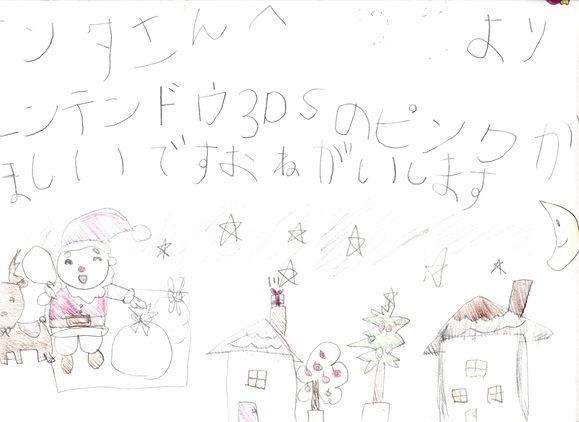 サンタさんへ より
ニンテンドウ3DSのピンクが
ほしいいですおねがいします